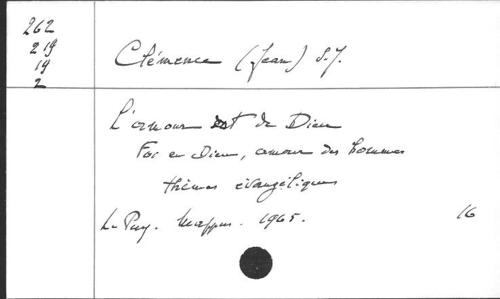 262
219
19
2
Clémence (Jean) S.J.
L'amour est de Dieu
Foi en Dieu, amour des hommes
thèmes évangéliques
Le Puy. Mappus. 1965.
16